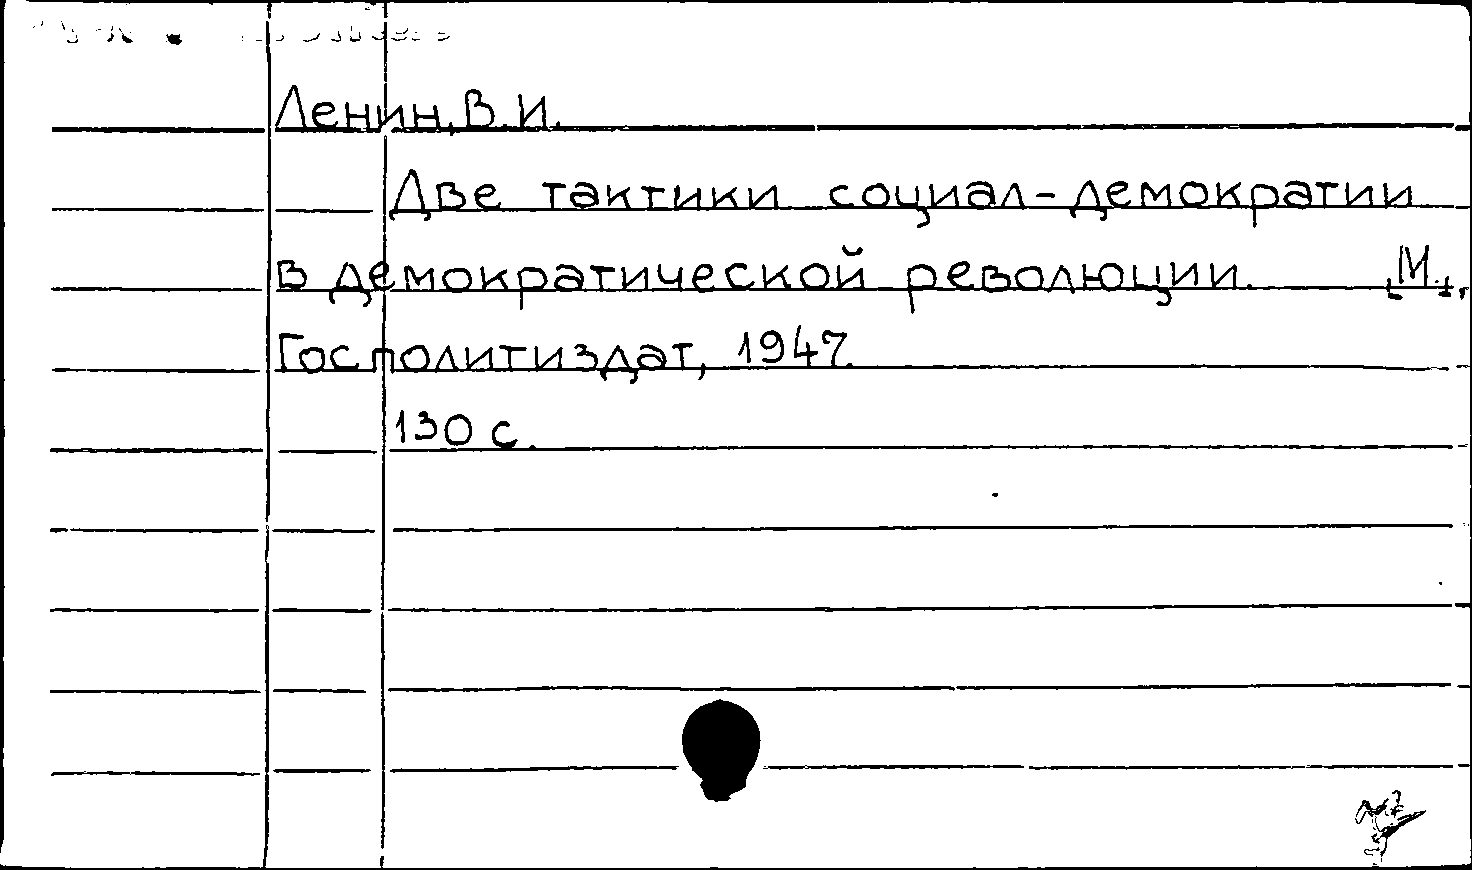 Ленин, В.И.
Две тактики социал-демократии
в демократической революции. [М.],
Госполитиздат, 1947.
130 с.